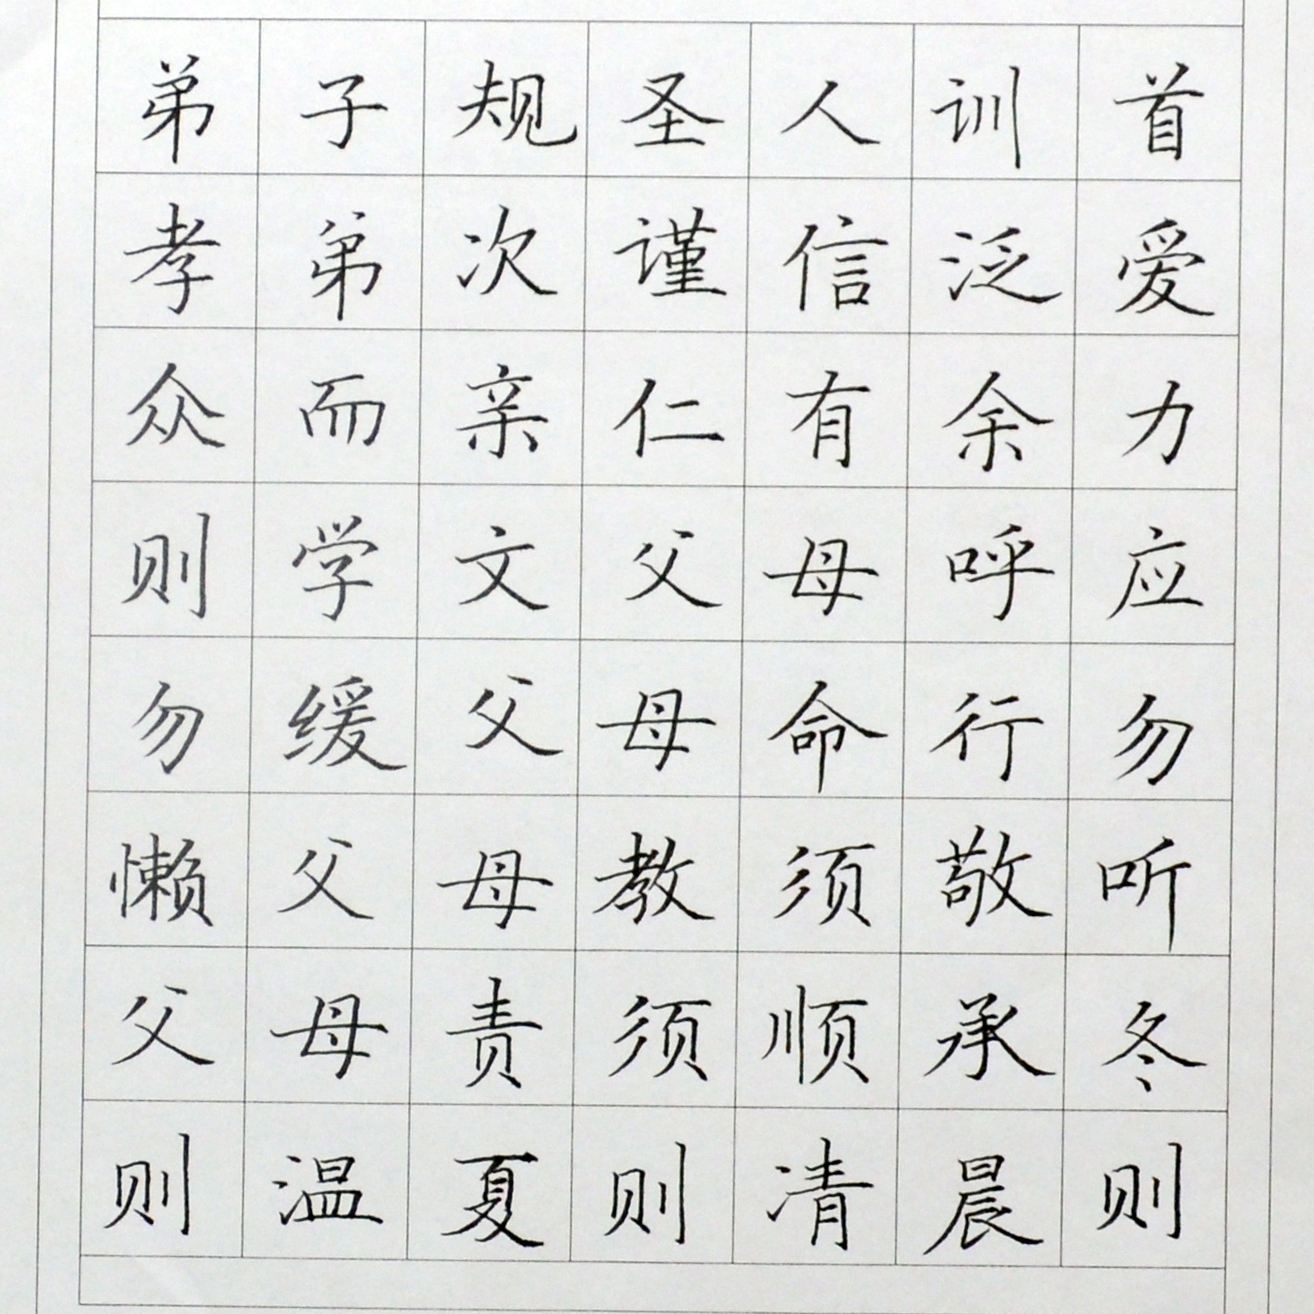 弟子规圣人训首
孝弟次谨信泛爱
众而亲仁有余力
则学文父母呼应
勿缓父母命行勿
懒父母教须敬听
父母责须顺承冬
则温夏则凊晨则